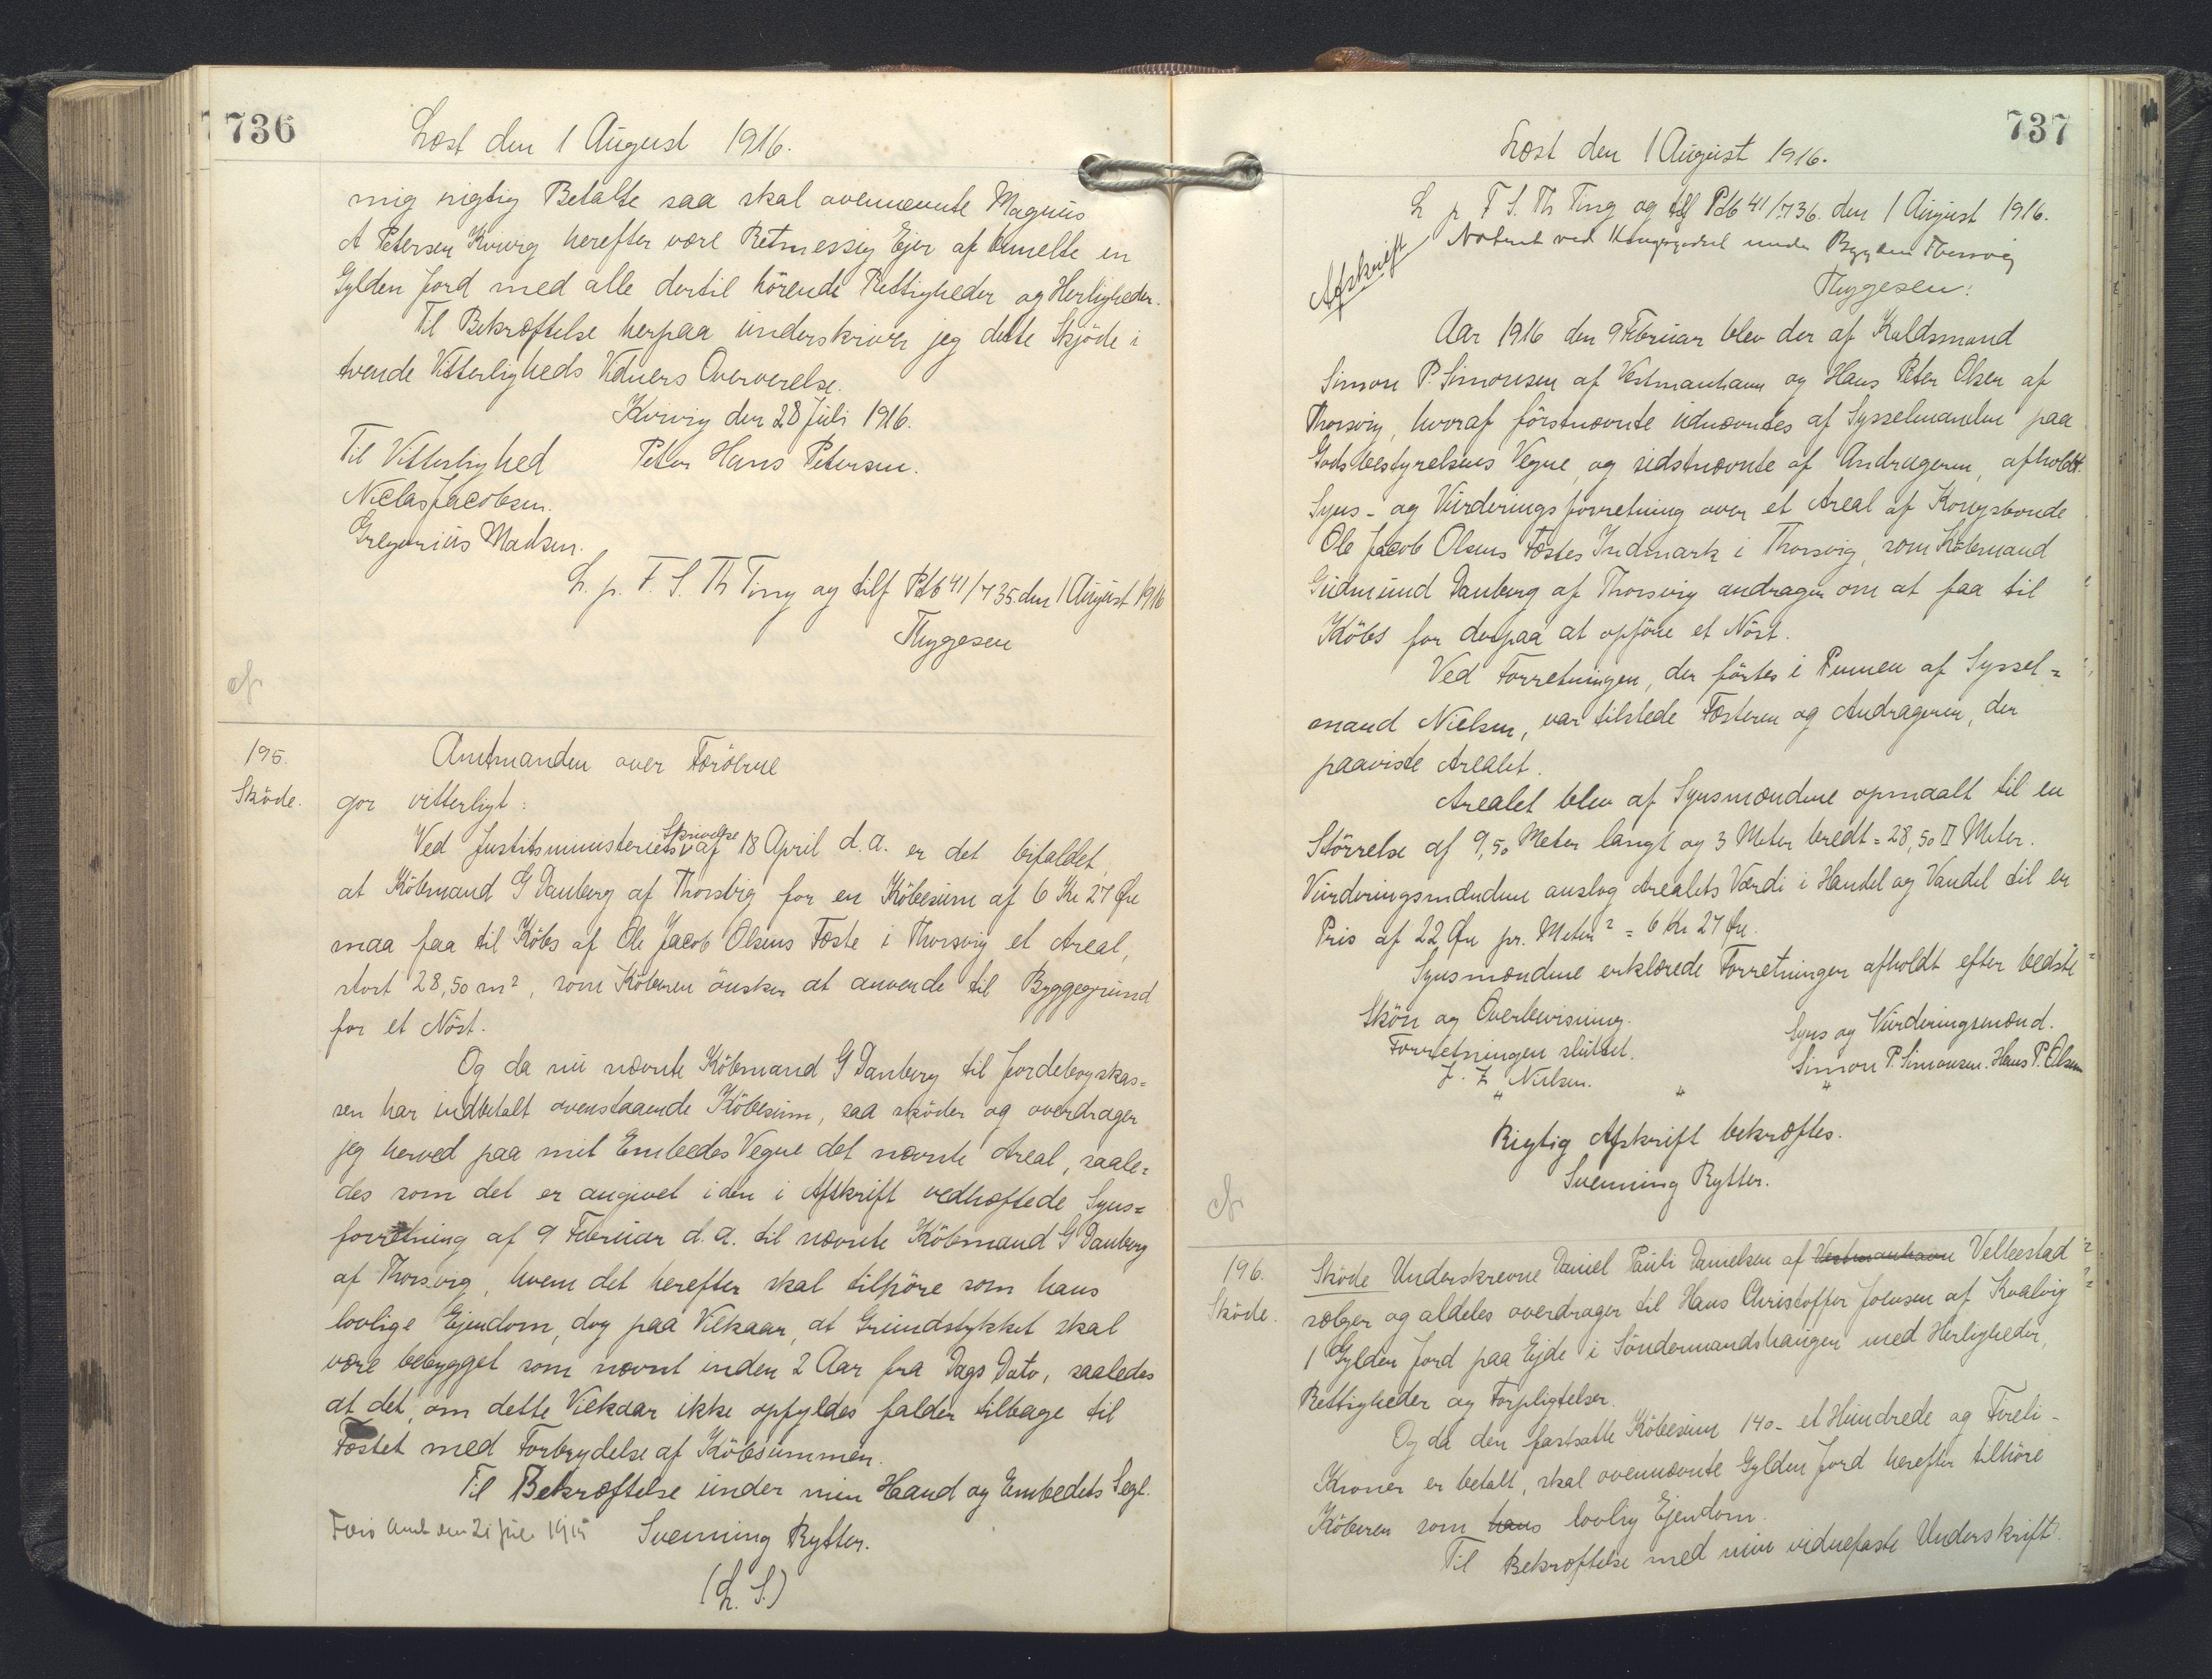 736
Læst den 1 August 1916.
mig rigtig Betalte saa skal ovennævnte Magnus
A Petersen Kvivig herefter være Retmessig Ejer af omelte en
Gylden Jord med alle dertil hörende Rettigheder og Herligheder.
Til Bekræftelse herpaa underskriver jeg dette Skjöde i
tvende Vitterligheds Vidners Oververelse.
Kvivig den 28 Juli 1916.
Til Vitterlighed Peter Hans Petersen.
Niclas Jacobsen.
Gregorius Madsen.
L. p. F. S. Th Ting og tilf Pdb 41/735. den 1 August 1916
Thygesen
195.
Sköde.
Amtmanden over Færöerne
gör vitterligt:
Ved Justitsministeriets Skrivelse af 18 April d.a. er det bifaldet,
at Köbmand G Danberg af Thorsvig for en Köbesum af 6 Kr 27 Øre
maa faa til Köbs af Ole Jacob Olsens Fæste i Thorsvig et Areal,
stort 28,50 m², som Köberen önsker at anvende til Byggegrund
for et Nöst.
Og da nu nævnte Köbmand G Danberg til Jordebogskas=
sen har indbetalt ovenstaaende Köbesum, saa sköder og overdrager
jeg herved paa mit Embedes Vegne det nævnte Areal, saale=
des som det er angivet i den i Afskrift vedhæftede Syns=
forretning af 9 Februar d.a. til nævnte Köbmand G Danberg
af Thorsvig, hvem det herefter skal tilhöre som hans
lovlige Ejendom, dog paa Vilkaar, at Grundstykket skal
være bebygget som nævnt inden 2 Aar fra Dags Dato, saaledes
at det, om dette Vilkaar ikke opfyldes falder tilbage til
Fæstet med Forbrydelse af Köbsummen.
Til Bekræftelse under min Haand og Embedets Segl.
Færö Amt den 21 Juli 191 Svenning Rytter.
(L. S.)
737
Læst den 1 August 1916.
L p F S. Th Ting og tilf Pdb 41/736. den 1 August 1916.
Noteret ved Kongsgodset under Bygden Thorsvig
Thygesen:
Afskrift
Aar 1916 den 9 Februar blev der af Kaldsmand
Simon P. Simonsen af Vestmanhavn og Hans Peter Olsen af
Thorsvig, hvoraf förstnævnte udnævntes af Sysselmanden paa
Godsbestyrelsens Vegne, og sidstnævnte af Andrageren, afholdt
Syns- og Vurderingsforretning over et Areal af Kongsbonde
Ole Jacob Olsens Fæstes Indmark i Thorsvig, som Köbmand
Gudmund Danberg af Thorsvig andrager om at faa til
Köbs for derpaa at opföre et Nöst.
Ved Forretningen, der förtes i Pennen af Syssel=
mand Nielsen, var tilstede Fæsteren og Andrageren, der
paaviste Arealet.
Arealet blev af Synsmændene opmaalt til en
Störrelse af 9,50 Meter langt og 3 Meter bredt = 28,50 □ Meter.
Vurderingsmændene anslog Arealets Værdi i Handel og Vandel til en
Pris af 22 Øre pr. Meter² = 6 Kr 27 Øre.
Synsmændene erklærede Forretningen afholdt efter bedste
Skön og Overbevisning.
Forretningen sluttet. Syns og Vurderingsmænd.
J. Z Nielsen. Simon P. Simonsen. Hans P. Olsen
" " "
Rigtig Afskrift bekræftes.
Svenning Rytter.
196.
Sköde.
Sköde Underskrevne Daniel Pauli Danielsen af Vestmanhavn Velbestad
sælger og aldeles overdrager til Hans Christoffer Joensen af Kvalvig
1 Gylden Jord paa Ejde i Söndermandshaugen med Herligheder,
Rettigheder og Forpligtelser.
Og da den fastsatte Köbesum 140- et Hundrede og Företi-
Kroner er betalt, skal ovennævnte Gylden Jord herefter tilhöre
Köberen som hans lovlig Ejendom.
Til Bekræftelse med min vidnefaste Underskrift.